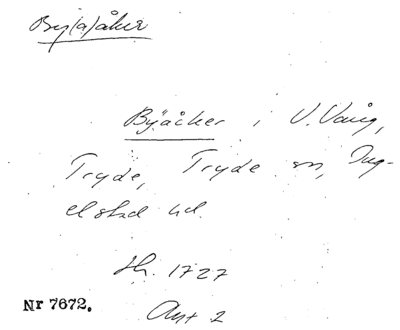 By(a)åker
Byäcker i V. Vång,
Tryde, Tryde sn, Ing-
elstad hd.
Sk. 1727
Nr 7672.
Akt 2